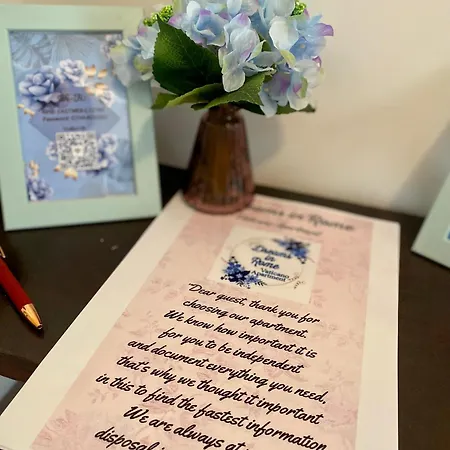 Wi-Fi
Dreams in Rome
Dreams
in
Rome
Vaticano
Apartment
"Dear guest, thank you for
choosing our apartment.
We know how important it is
for you to be independent
and document everything you need,
that's why we thought it important
in this to find the fastest information
We are always at
disposal